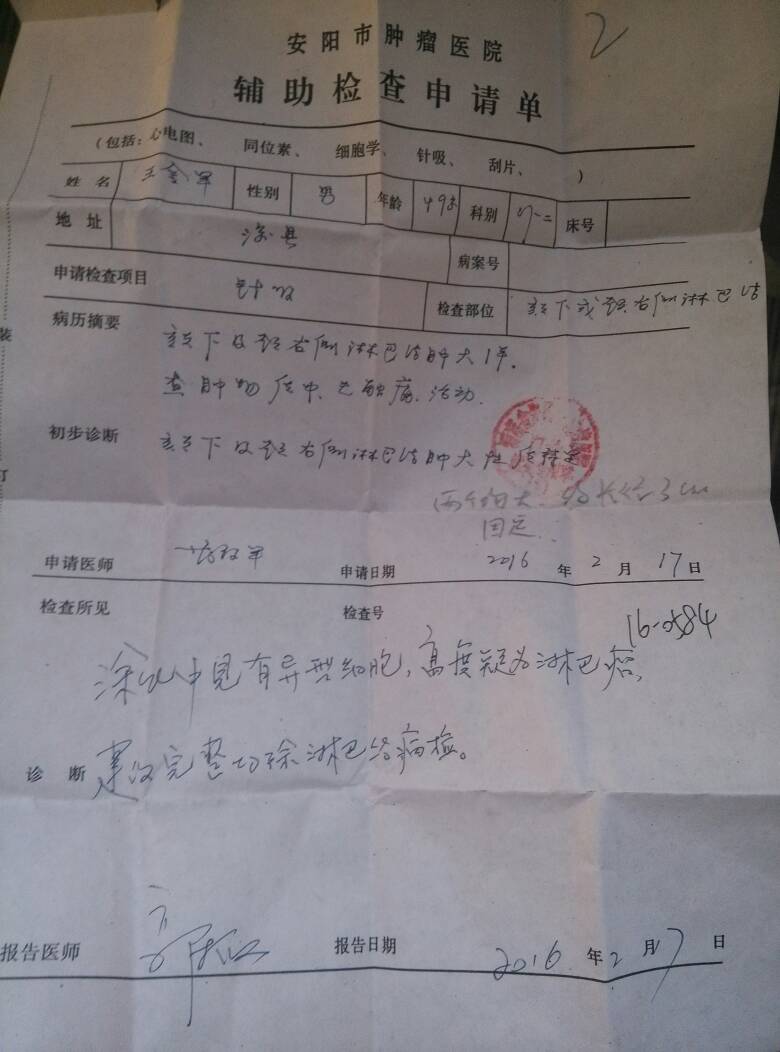 2
安阳市肿瘤医院
辅助检查申请单
(包括:心电图、 同位素、 细胞学、 针吸、 刮片、 )
姓 名 王金军 性别 男 年龄 49岁 科别 床号
地 址 县 病案号
申请检查项目 针吸 检查部位 颏下或颈右侧淋巴结
病历摘要 颏下及颈右侧淋巴结肿大1年.
查肿物质中.无触痛.活动.
初步诊断 颏下及颈右侧淋巴结肿大性质待定
两个 大 长径3cm
固定.
申请医师 申请日期 2016 年 2 月 17 日
检查所见 检查号 16-0584
涂片中见有异型细胞,高度疑为淋巴瘤,
诊 断 建议完整切除淋巴结病检。
报告医师 报告日期 2016 年 2 月 17 日
装
订